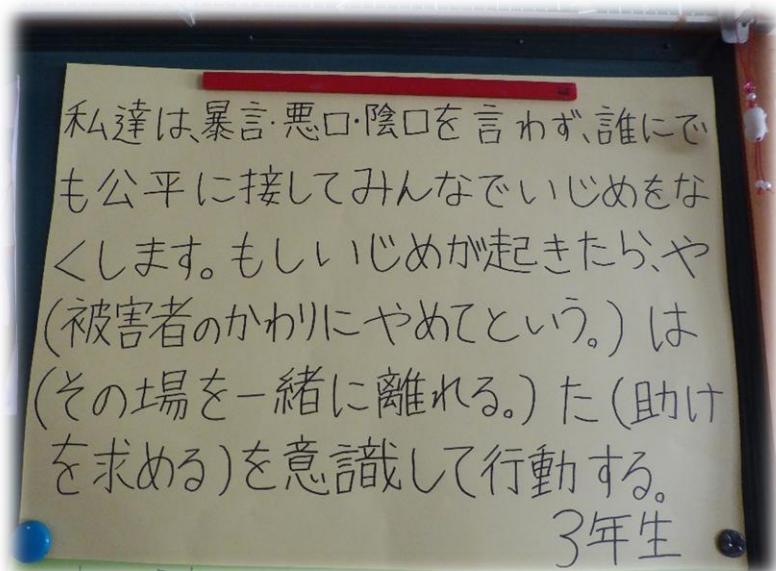 私達は、暴言・悪口・陰口を言わず、誰にで
も公平に接してみんなでいじめをな
くします。もしいじめが起きたら、や
(被害者のかわりにやめてという。)は
(その場を一緒に離れる。)た(助け
を求める)を意識して行動する。
3年生